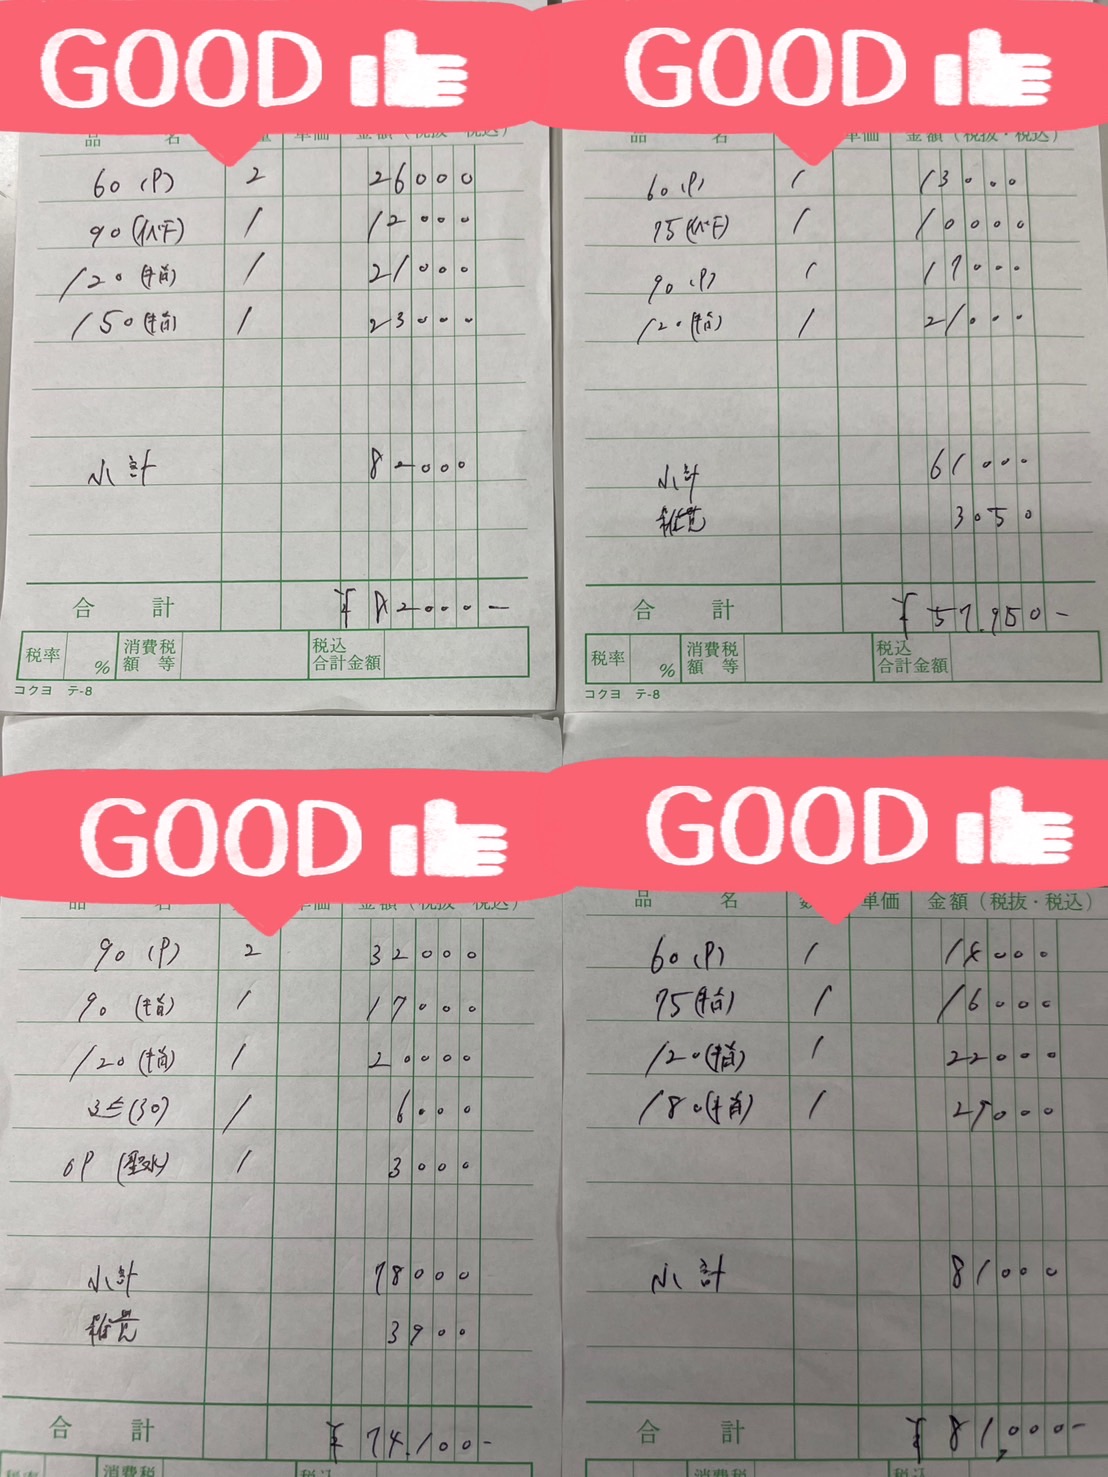 GOOD
品 名 単価 金額（税抜・税込）
60 (P) 2 26000
90 (イベ下) 1 12000
120 (指) 1 21000
150 (指) 1 23000
小計 82000
合計 ¥82000-
税率 % 消費税額等 税込合計金額
コクヨ テ-8
GOOD
品 名 単価 金額（税抜・税込）
60 (P) 1 13000
75 (イベ下) 1 10000
90 (P) 1 17000
120 (指) 1 21000
小計 61000
雑費 3050
合計 ¥57,950-
税率 % 消費税額等 税込合計金額
コクヨ テ-8
GOOD
品 名 単価 金額（税抜・税込）
90 (P) 2 32000
90 (指) 1 17000
120 (指) 1 20000
(30) 1 6000
OP (聖水) 1 3000
小計 78000
雑費 3900
合計 ¥74,100-
税率 消費税 税込
GOOD
品 名 数 単価 金額（税抜・税込）
60 (P) 1 14000
75 (指) 1 16000
120 (指) 1 22000
180 (指) 1 29000
小計 81000
合計 ¥81,000-
消費税 税込